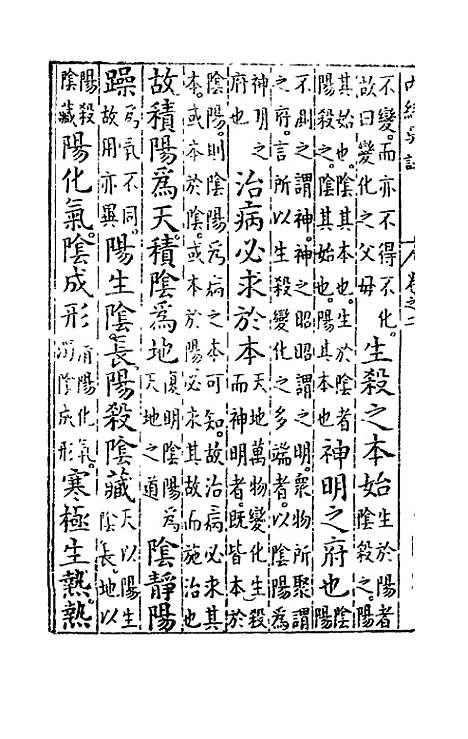 內經吳註 卷之二
不變。而亦不得不化。
故曰變化之父母
生殺之本始
生於陽者
陰殺之。陽
其始也。陰其本也。生於陰者
陽殺之。陰其始也。陽其本也
神明之府也
陰
陽
不測之謂神。神之昭昭謂之明。衆物所聚謂
之府。言所以生殺變化之多端者。以陰陽爲
神明之
府也
治病必求於本
天地萬物變化生殺
而神明者。既皆本於
陰陽。則陰陽爲病之本可知。故治病必求其
本。或本於陰。或本於陽。必求其故而施治也
故積陽爲天。積陰爲地
復明陰陽爲
天地之道
陰靜陽
躁
爲氣不同。
故用亦異
陽生陰長。陽殺陰藏
天以陽生
陰長。地以
陽殺
陰藏
陽化氣。陰成形
陽化氣。
陰成形
寒極生熱。熱